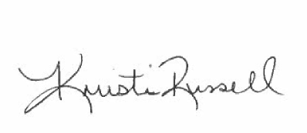 Kristi Russell